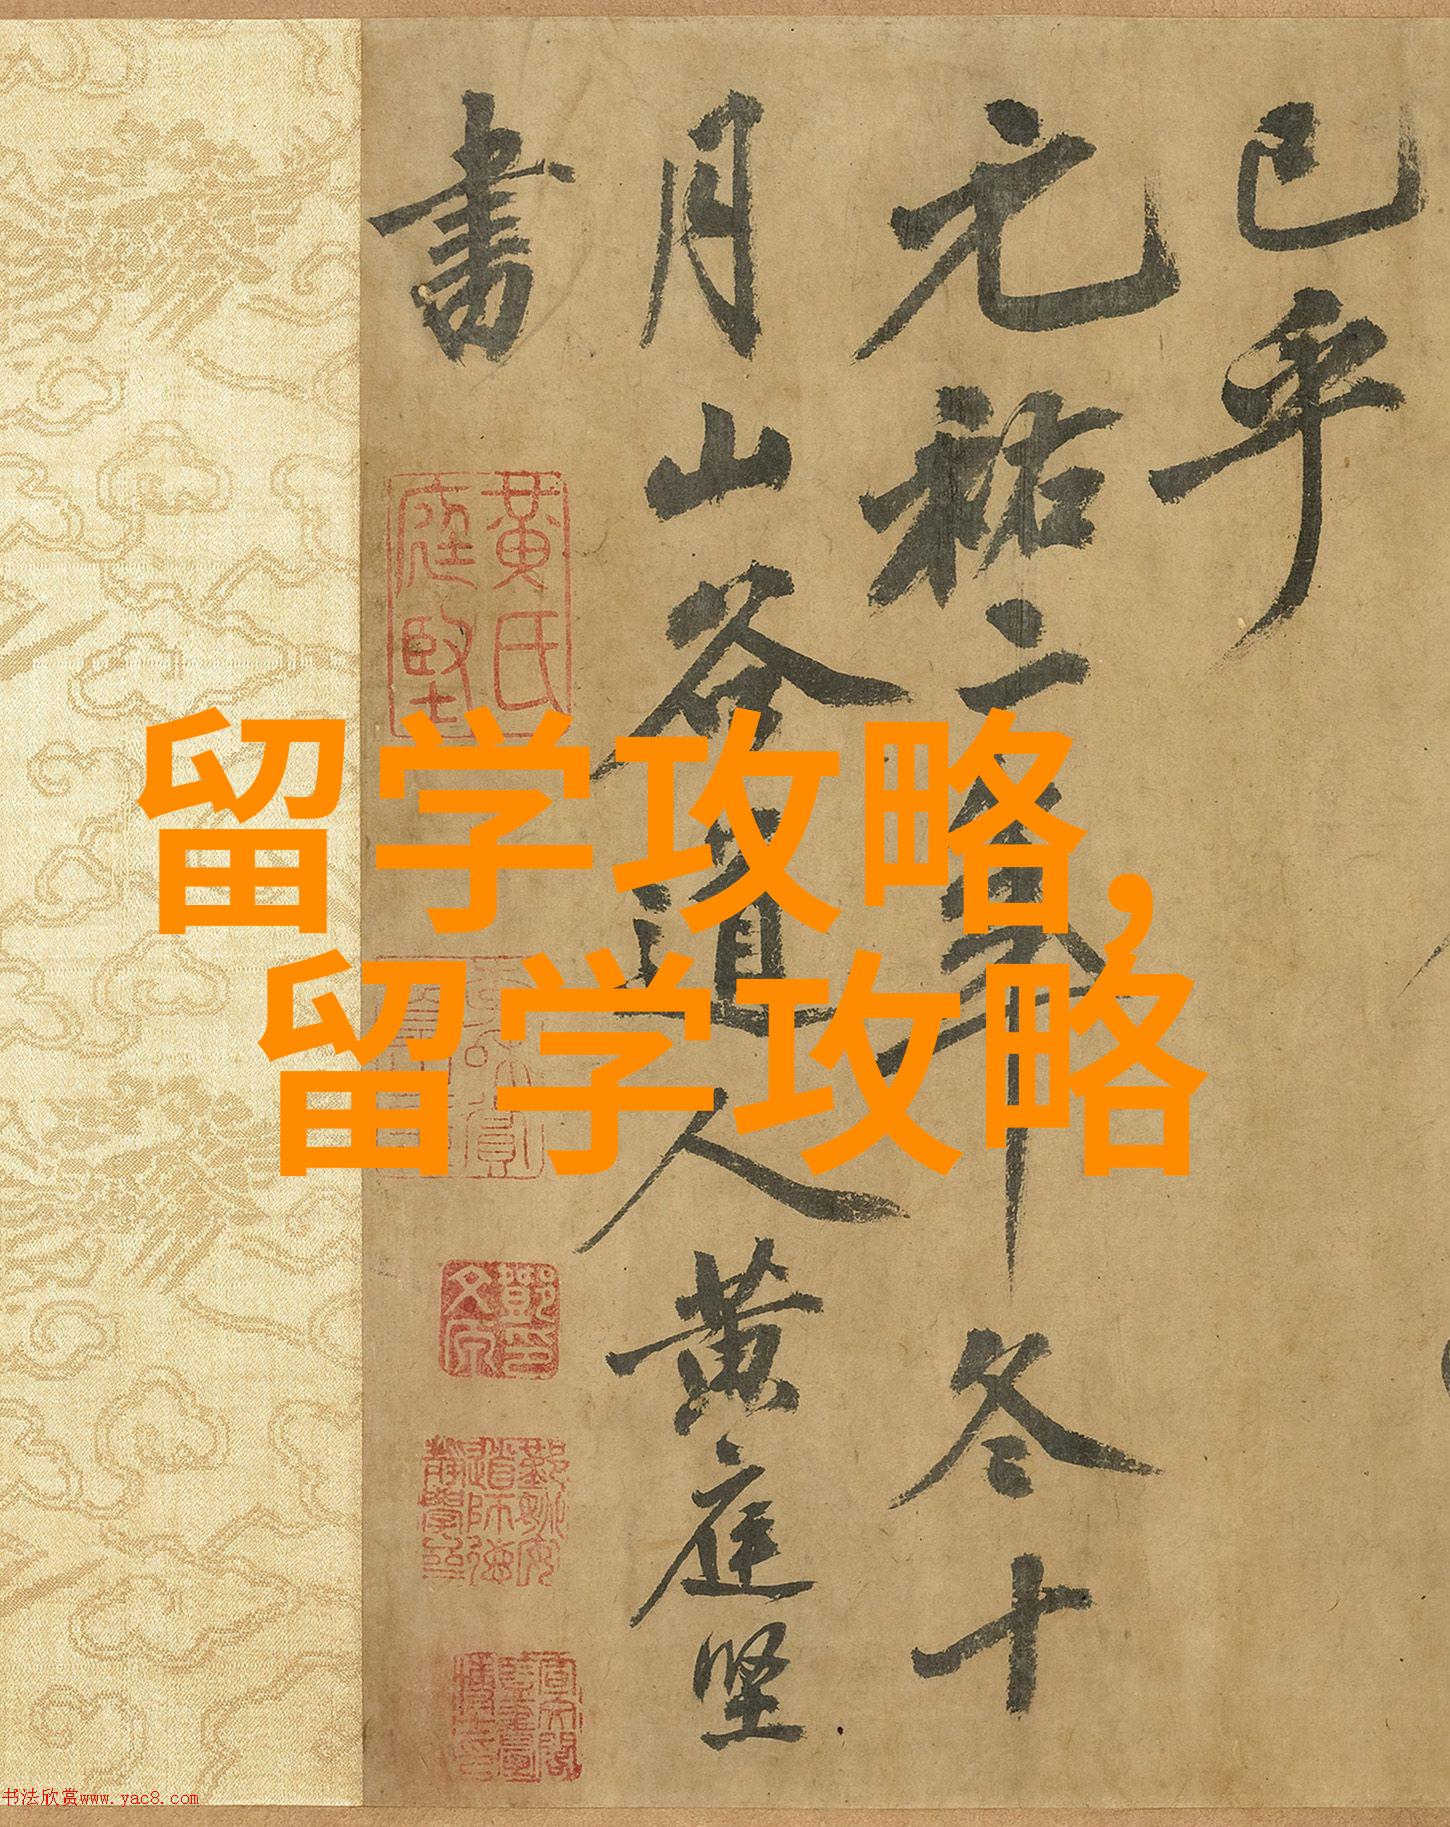 已乎
元祐二年冬十
月山谷道人黄庭坚
書
黄氏庭堅
留学攻略,
留学攻略
书法欣赏www.yac8.com